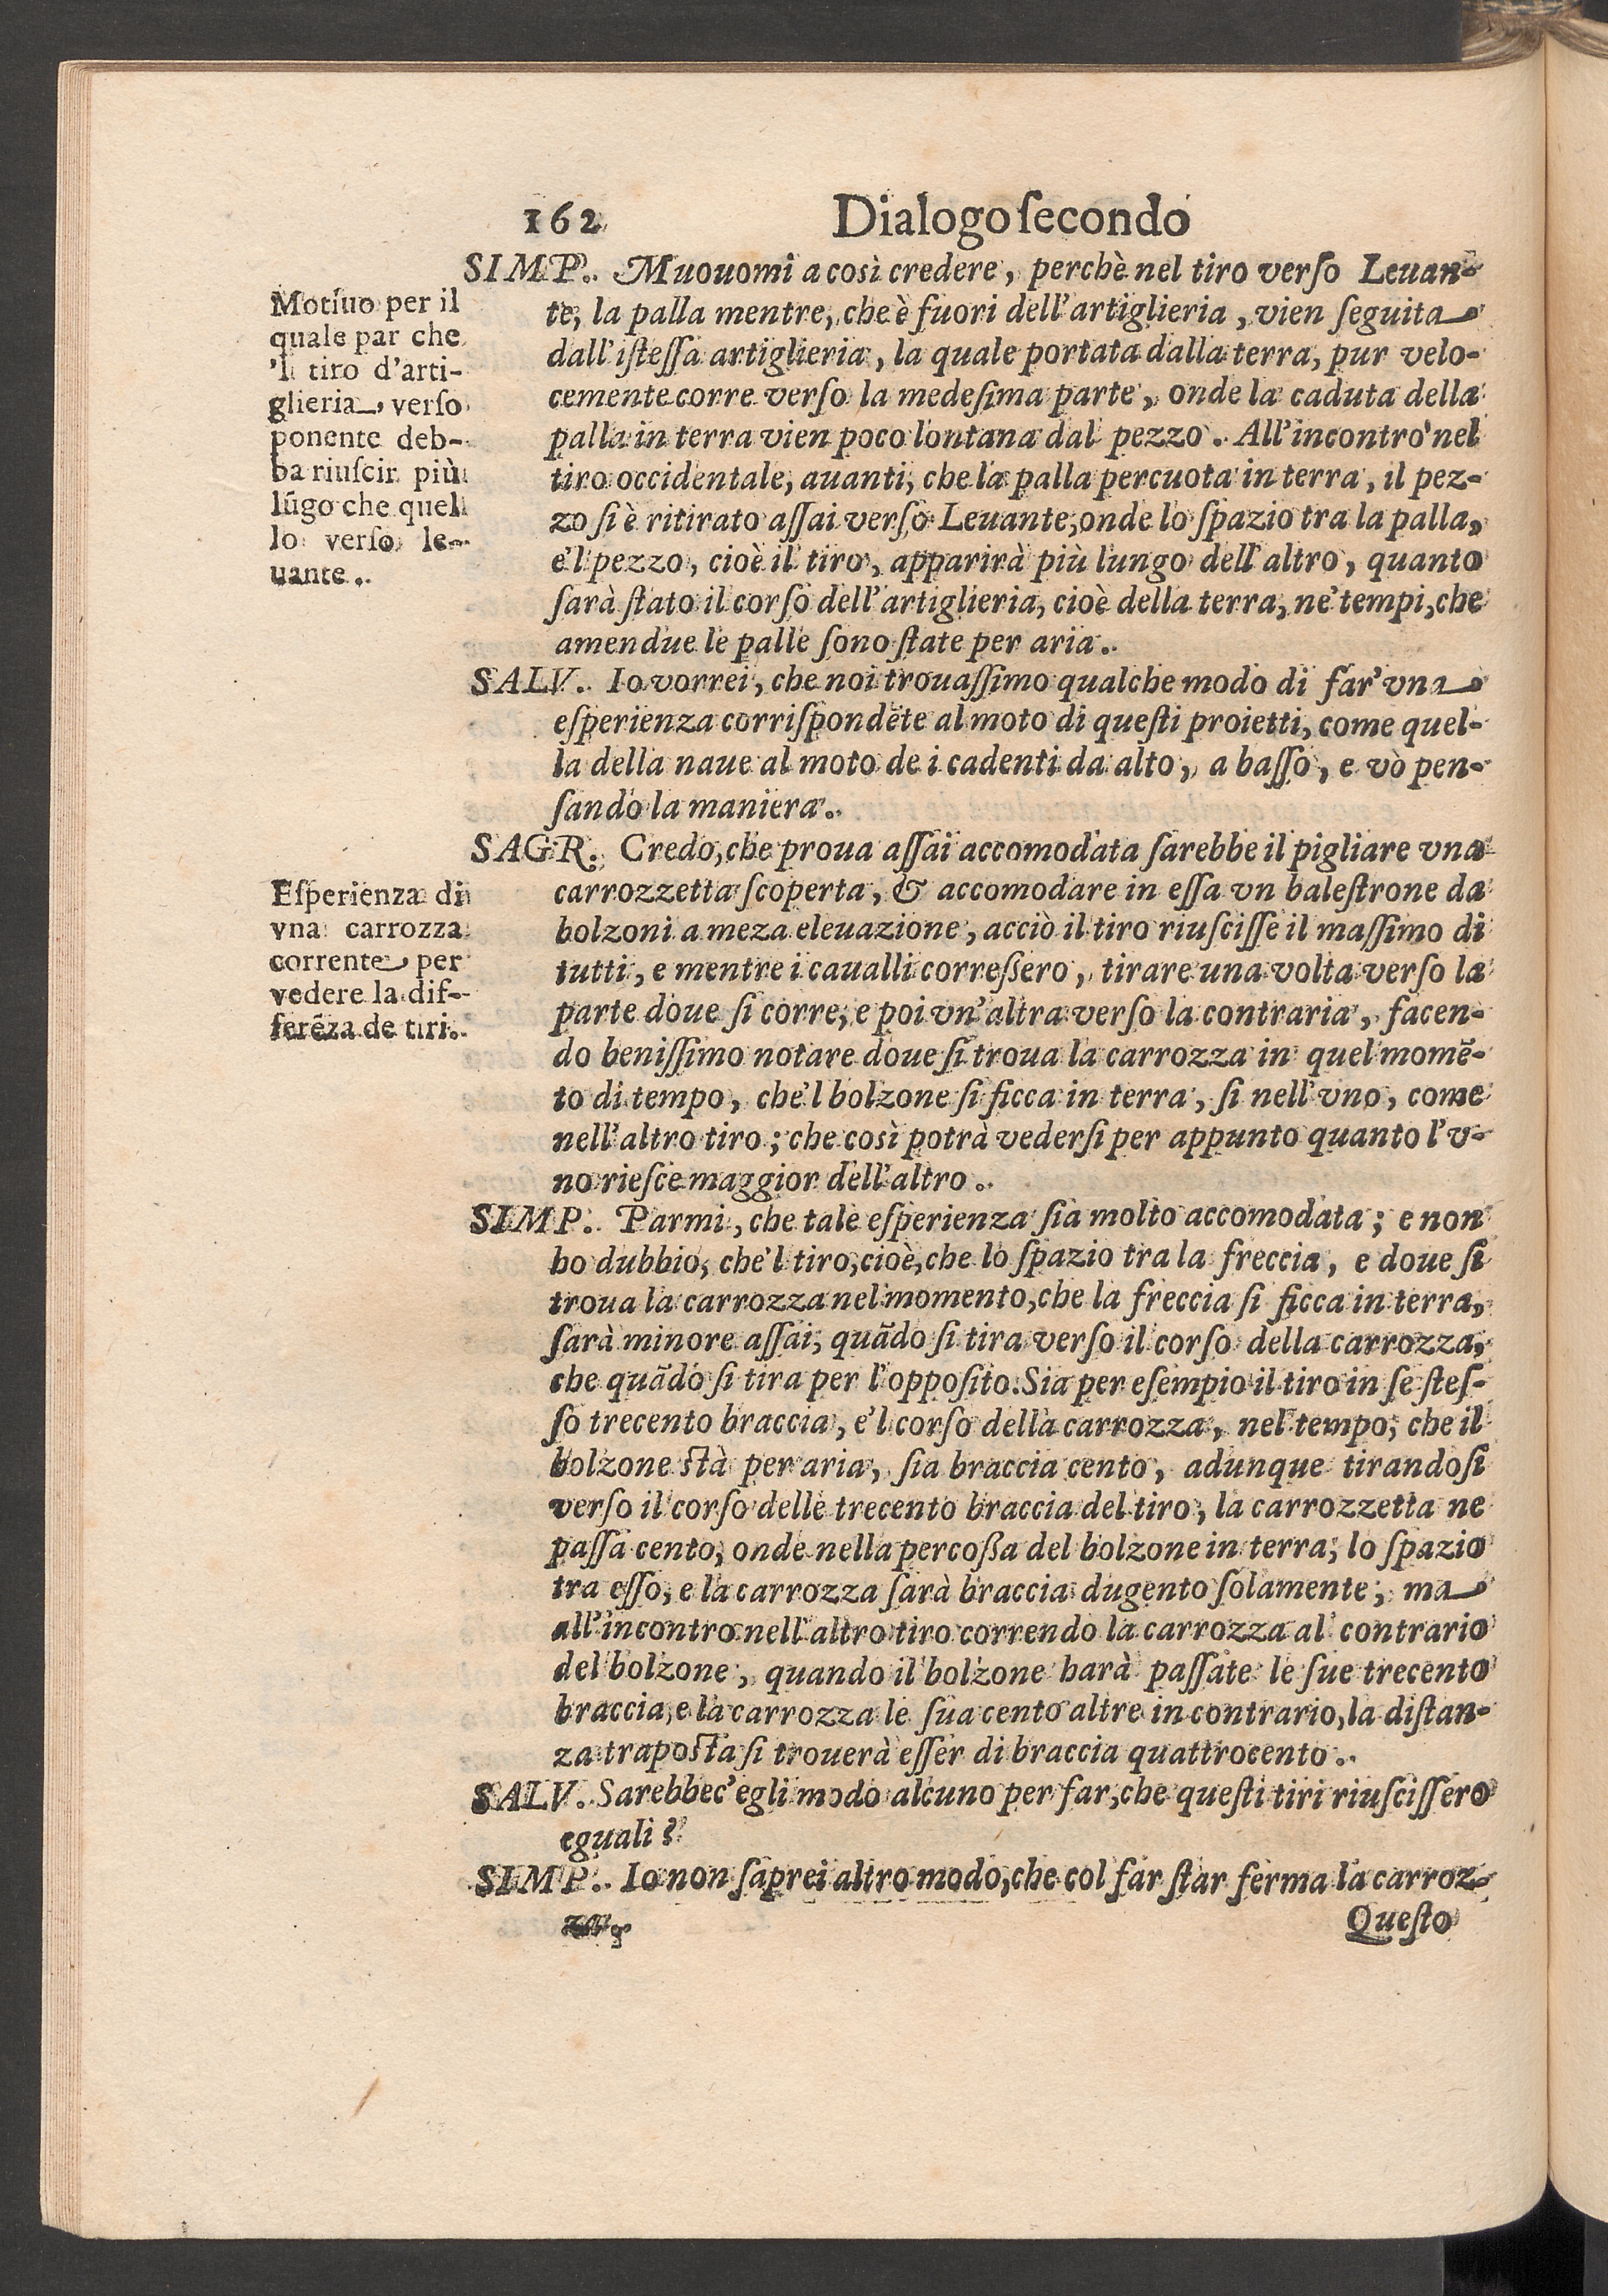 162
Dialogo ſecondo
SIMP. Muouomi a così credere, perchè nel tiro verſo Leuan-
te, la palla mentre, che è fuori dell'artiglieria, vien ſeguita
dall'iſteſſa artiglieria, la quale portata dalla terra, pur velo-
cemente corre verſo la medeſima parte, onde la caduta della
palla in terra vien poco lontana dal pezzo. All'incontro nel
tiro occidentale, auanti, che la palla percuota in terra, il pez-
zo ſi è ritirato aſſai verſo Leuante, onde lo ſpazio tra la palla,
e'l pezzo, cioè il tiro, apparirà più lungo dell'altro, quanto
ſarà ſtato il corſo dell'artiglieria, cioè della terra, ne' tempi, che
amendue le palle ſono ſtate per aria.
Motiuo per il
quale par che
'l tiro d'arti-
glieria verſo
ponente deb-
ba riuſcir più
lũgo che quel
lo verſo le-
uante.
SALV. Io vorrei, che noi trouaſſimo qualche modo di far' vna
eſperienza corriſpondẽte al moto di queſti proietti, come quel-
la della naue al moto de i cadenti da alto, a baſſo, e vò pen-
ſando la maniera.
SAGR. Credo, che proua aſſai accomodata ſarebbe il pigliare vna
carrozzetta ſcoperta, & accomodare in eſſa vn baleſtrone da
bolzoni a meza eleuazione, acciò il tiro riuſciſſe il maſſimo di
tutti, e mentre i caualli correßero, tirare una volta verſo la
parte doue ſi corre, e poi vn'altra verſo la contraria, facen-
do beniſſimo notare doue ſi troua la carrozza in quel momẽ-
to di tempo, che'l bolzone ſi ficca in terra, ſi nell'vno, come
nell'altro tiro; che così potrà vederſi per appunto quanto l'v-
no rieſce maggior dell'altro.
Eſperienza di
vna carrozza
corrente per
vedere la dif-
ferẽza de tiri.
SIMP. Parmi, che tale eſperienza ſia molto accomodata; e non
ho dubbio, che'l tiro, cioè, che lo ſpazio tra la freccia, e doue ſi
troua la carrozza nel momento, che la freccia ſi ficca in terra,
ſarà minore aſſai, quãdo ſi tira verſo il corſo della carrozza,
che quãdo ſi tira per l'oppoſito. Sia per eſempio il tiro in ſe ſteſ-
ſo trecento braccia, e'l corſo della carrozza, nel tempo, che il
bolzone ſtà per aria, ſia braccia cento, adunque tirandoſi
verſo il corſo delle trecento braccia del tiro, la carrozzetta ne
paſſa cento, onde nella percoßa del bolzone in terra, lo ſpazio
tra eſſo, e la carrozza ſarà braccia dugento ſolamente, ma
all'incontro nell'altro tiro correndo la carrozza al contrario
del bolzone, quando il bolzone harà paſſate le ſue trecento
braccia, e la carrozza le ſua cento altre in contrario, la diſtan-
za trapoſta ſi trouerà eſſer di braccia quattrocento.
SALV. Sarebbec'egli modo alcuno per far, che queſti tiri riuſciſſero
eguali?
SIMP. Io non ſaprei altro modo, che col far ſtar ferma la carroz-
za.
Queſto